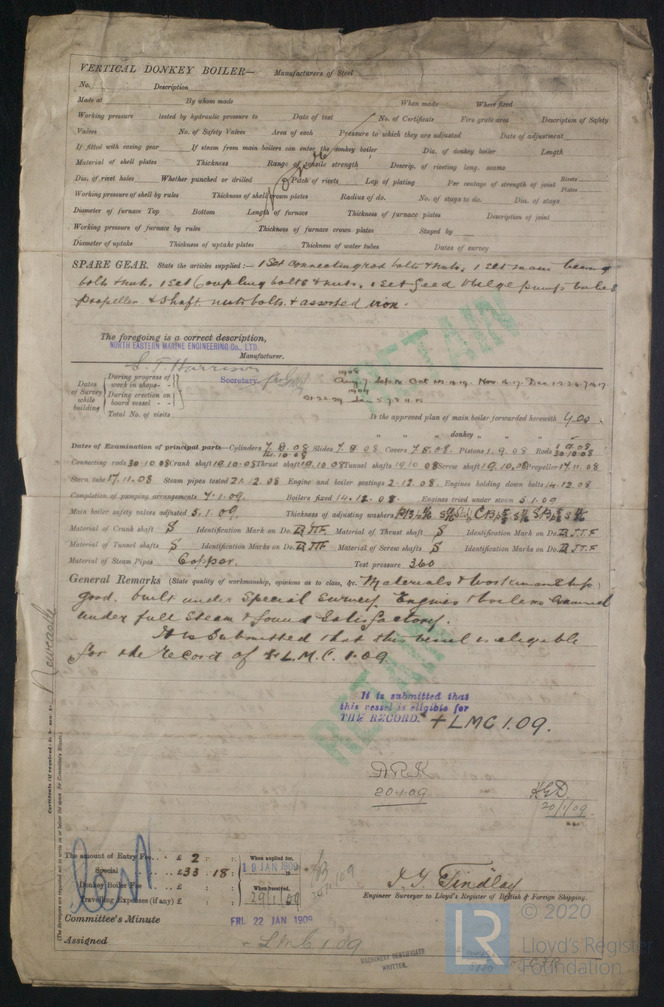 VERTICAL DONKEY BOILER— Manufacturers of Steel
No. Description
Made at By whom made When made Where fixed
Working pressure tested by hydraulic pressure to Date of test No. of Certificate Fire grate area Description of Safety
Valves No. of Safety Valves Area of each Pressure to which they are adjusted Date of adjustment
If fitted with easing gear If steam from main boilers can enter the donkey boiler Dia. of donkey boiler Length
Material of shell plates Thickness Range of tensile strength Descrip. of riveting long. seams
Dia. of rivet holes Whether punched or drilled Pitch of rivets Lap of plating Per centage of strength of joint Rivets Plates
Working pressure of shell by rules Thickness of shell crown plates Radius of do. No. of stays to do. Dia. of stays
Diameter of furnace Top Bottom Length of furnace Thickness of furnace plates Description of joint
Working pressure of furnace by rules Thickness of furnace crown plates Stayed by
Diameter of uptake Thickness of uptake plates Thickness of water tubes Dates of survey
SPARE GEAR. State the articles supplied:— 1 Set connecting rod bolts & nuts, 1 set main bearing
bolts & nuts, 1 set Coupling bolts & nuts, 1 set feed & bilge pump valves
Propeller & Shaft nuts bolts & assorted iron.
RETAIN
The foregoing is a correct description,
NORTH EASTERN MARINE ENGINEERING Co., LTD.
Manufacturer.
Secretary.
Dates of Survey while building
During progress of work in shops - -
During erection on board vessel - - -
Total No. of visits
1908
1909
Is the approved plan of main boiler forwarded herewith Yes.
" " " donkey " " "
Dates of Examination of principal parts—Cylinders 7.8.08 Slides 7.8.08 Covers 7.8.08 Pistons 1.9.08 Rods 30.10.08
Connecting rods 30.10.08 Crank shaft 19.10.08 Thrust shaft 19.10.08 Tunnel shafts 19.10.08 Screw shaft 19.10.08 Propeller 17.11.08
Stern tube 17.11.08 Steam pipes tested 21.12.08 Engine and boiler seatings 2.12.08 Engines holding down bolts 14.12.08
Completion of pumping arrangements 7.1.09. Boilers fixed 14.12.08 Engines tried under steam 5.1.09
Main boiler safety valves adjusted 5.1.09. Thickness of adjusting washers
Material of Crank shaft S Identification Mark on Do. Material of Thrust shaft S Identification Mark on Do.
Material of Tunnel shafts S Identification Marks on Do. Material of Screw shafts S Identification Marks on Do.
Material of Steam Pipes Copper. Test pressure 360
General Remarks (State quality of workmanship, opinions as to class, &c. Materials & workmanship
good. built under Special Survey. Engines & boilers examined
under full steam & found satisfactory.
It is submitted that this vessel is eligible
for the record of + L.M.C. 1.09
RETAIN
It is submitted that
this vessel is eligible for
THE RECORD. + LMC 1.09.
20.1.09
20/1/09
Newcastle
The amount of Entry Fee . . £ 2 : :
Special . . £ 33 : 18 :
Donkey Boiler Fee . . £ : :
Travelling Expenses (if any) £ : :
When applied for,
19 JAN 1909
When received,
29/1/09
J. T. Findlay
Engineer Surveyor to Lloyd's Register of British & Foreign Shipping.
Committee's Minute FRI. 22 JAN 1909
Assigned + L.M.C 1.09
MACHINERY CERTIFICATE
WRITTEN.
© 2020
Lloyd's Register
Foundation
LR